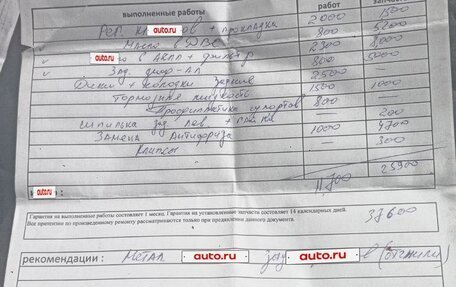 выполненные работы работ запчаст
Рег. клапанов + прокладка 2000 1500
Масло в ДВС 800 5200
auto.ru о в АКПП + фильтр 2300 8000
Зад. диф-ал 800 5000
Диски + колодки задние 2500
Тормозная жидкость 1500 1000
+ Профилактика суппортов 800
Шпилька зад лев + гайка — 200
Замена Антифриза 1000 4700
Клипсы — 300
11.700 25900
auto.ru
Гарантия на выполненные работы составляет 1 месяц. Гарантия на установленные запчасти составляет 14 календарных дней.
Все претензии по произведенному ремонту рассматриваются только при предъявлении данного документа.
37600
рекомендации : Метал auto.ru зад auto.ru в (отжили)